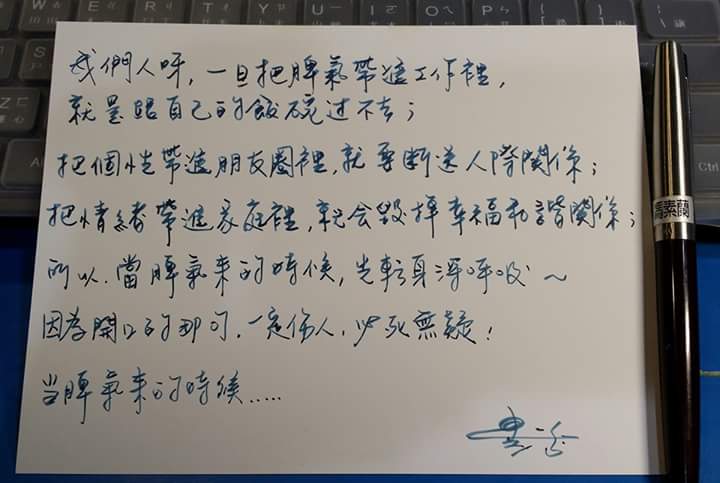 W E R T Y U I O P
我們人呀，一旦把脾氣帶進工作裡，
就是跟自己的飯碗过不去；
把個性帶進朋友圈裡，就要断送人際関係；
把情緒帶進家庭裡，就会毀掉幸福和諧関係；
所以，當脾氣来的時候，先転身深呼吸～
因為開口的那句，一定伤人，必死無疑！
当脾氣来的時候.....
素蘭
Ctrl